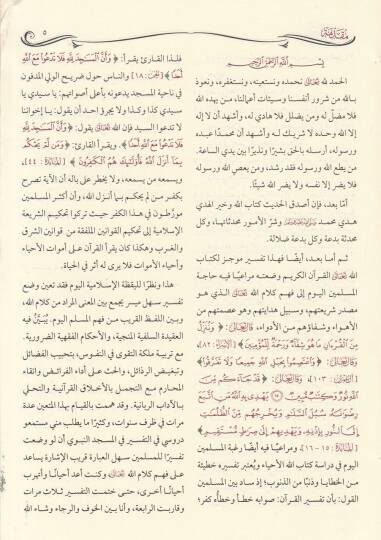 مقدمة
٥
بسم الله الرحمن الرحيم
الحمد لله تعالى نحمده ونستعينه، ونستغفره، ونعوذ
بالله من شرور أنفسنا وسيئات أعمالنا، من يهده الله
فلا مضلّ له ومن يضلل فلا هادي له، وأشهد أن لا إله
إلا الله وحده لا شريك لـه وأشهد أن محمدًا عبده
ورسوله، أرسله بالحق بشيرًا ونذيرًا بين يدي الساعة.
من يطع الله ورسوله فقد رشد، ومن يعص الله ورسوله
فلا يضر إلا نفسه ولا يضر الله شيئًا.
أمّا بعد، فإن أصدق الحديث كتاب الله وخير الهدي
هدي محمد وشرّ الأمور محدثاتها، وكل
محدثة بدعة وكل بدعة ضلالة.
ثم أمـا بعـد، أيضًا فهـذا تفسيـر موجز لكتاب
الله تعالى القرآن الكريـم وضعتـه مراعيًا فيـه حاجـة
المسلمين اليوم إلى فهم كلام الله تعالى الذي هـو
مصدر شريعتهم، وسبيل هدايتهم وهو عصمتهم من
الأهواء وشفاؤهم من الأدواء، قال تعالى: ﴿ وَنُنَزِّلُ
مِنَ الْقُرْآنِ مَا هُوَ شِفَاءٌ وَرَحْمَةٌ لِلْمُؤْمِنِينَ ﴾ [الإسراء: ٨٢]
وقال تعالى: ﴿ وَاعْتَصِمُوا بِحَبْلِ اللَّهِ جَمِيعًا وَلَا تَفَرَّقُوا ﴾
[آل عمران: ١٠٣] وقال تعالى: ﴿ قَدْ جَاءَكُم مِّنَ اللَّهِ
نُورٌ وَكِتَابٌ مُّبِينٌ ۝ يَهْدِي بِهِ اللَّهُ مَنِ اتَّبَعَ
رِضْوَانَهُ سُبُلَ السَّلَامِ وَيُخْرِجُهُم مِّنَ الظُّلُمَاتِ
إِلَى النُّورِ بِإِذْنِهِ وَيَهْدِيهِمْ إِلَىٰ صِرَاطٍ مُّسْتَقِيمٍ ﴾
[المائدة: ١٥-١٦] ومراعيًا فيه أيضًا رغبة المسلمين
اليوم في دراسة كتاب الله الأحياء ويُعتبر تفسيره خطيئة
من الخطايا وذنبًا من الذنوب؛ إذ ساد بين المسلمين
القول: بأن تفسير القرآن: صوابه خطأ وخطؤه كفر؛
فلـذا القارئ يقرأ: ﴿ وَأَنَّ الْمَسَاجِدَ لِلَّهِ فَلَا تَدْعُوا مَعَ اللَّهِ
أَحَدًا ﴾ [الجن: ١٨] والناس حول ضريح الولي المدفون
في ناحية المسجد يدعونه بأعلى أصواتهم: يا سيدي يا
سيدي كذا وكذا ولا يجرؤ احـد أن يقول: يا إخواننا
لا تدعوا السيد فإن الله تعالى يقول: ﴿ وَأَنَّ الْمَسَاجِدَ لِلَّهِ
فَلَا تَدْعُوا مَعَ اللَّهِ أَحَدًا ﴾. ويقرأ القارئ: ﴿ وَمَن لَّمْ يَحْكُم
بِمَا أَنزَلَ اللَّهُ فَأُولَٰئِكَ هُمُ الْكَافِرُونَ ﴾ [المائدة: ٤٤]،
ويسمعه من يسمعه، ولا يخطر على باله أن الآية تصرح
بكفـر مـن لم يحكـم بـما أنـزل الله، وأن أكثـر المسلمين
مورّطون في هذا الكفر حيث تركوا تحكيم الشريعة
الإسلامية إلى تحكيم القوانين الملفقة من قوانين الشرق
والغرب وهكذا كان يقرأ القرآن على أموات الأحياء
وأحياء الأموات فلا يرى له أثر في الحياة.
هذا ونظرًا لليقظة الإسلامية اليوم فقد تعين وضع
تفسير سـهل ميسر يجمع بين المعنى المراد من كلام الله،
وبين اللفـظ القريب من فهم المسلم اليوم. يُبَيَّنُ فيه
العقيدة السلفية المنجية، والأحكام الفقهية الضرورية.
مع تربيـة ملكة التقوى في النفوس، بتحبيب الفضائل
وتبغيض الرذائل، والحث على أداء الفرائض واتقاء
المحارم مع التجمل بالأخلاق القرآنيـة والتحلي
بالآداب الربانية. وقد هممت بالقيام بهذا المتعين عدة
مرات في ظرف سنوات، وكثيرًا ما يطلب مني مستمعو
دروسي في التفسير في المسجد النبوي أن لو وضعت
تفسيرًا للمسلمين سهل العبارة قريب الإشارة يساعد
على فهم كلام الله تعالى وكنت أعد أحيانًا وأتهرب
أحيانًا أخرى، حتـى ختمـت التفسيـر ثـلاث مرات
وقاربت الرابعة، وأنا بين الخوف والرجاء وشاء الله